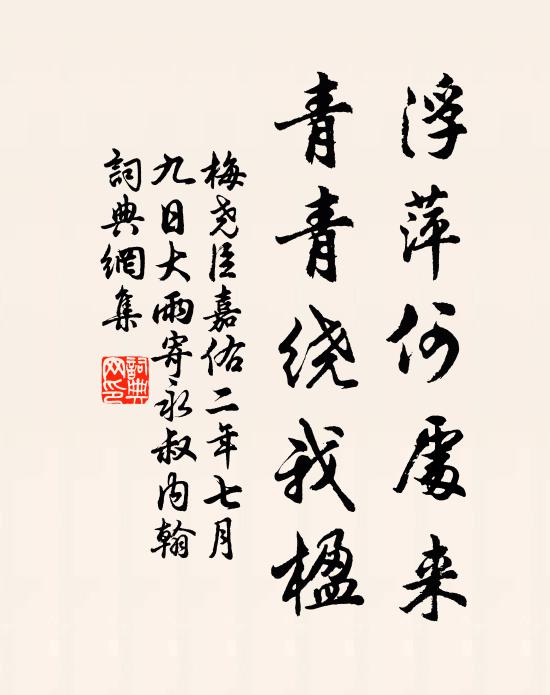 浮萍何處来
青青绕我楹
梅尧臣嘉佑二年七月
九日大雨寄永叔内翰
詞典網集
詞典網印